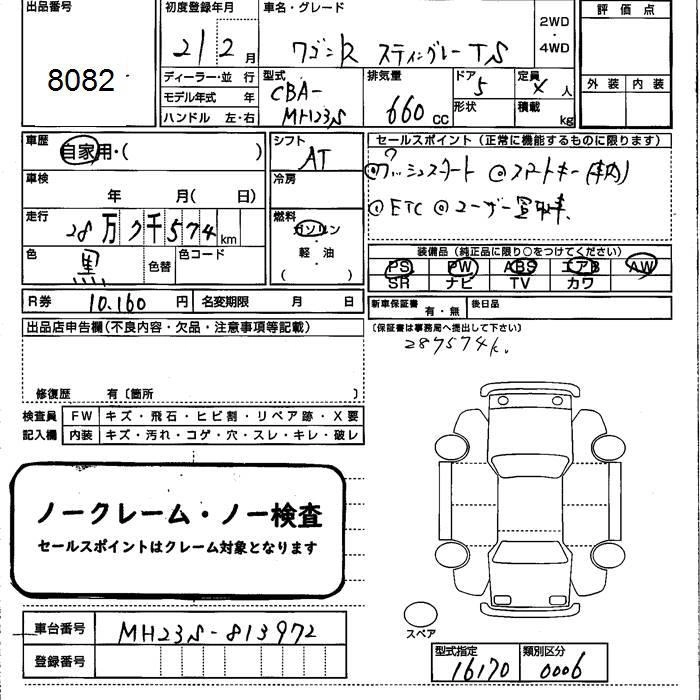 出品番号
8082
初度登録年月
21 2 月
車名・グレード
ワゴンR スティングレー TS
2WD
・
4WD
評価点
外装 内装
ディーラー・並行
モデル年式 年
ハンドル 左・右
型式
CBA-
MH23S
排気量
660 CC
ドア
5
形状
定員
4 人
積載
kg
車歴
自家用・( )
シフト
AT
セールスポイント(正常に機能するものに限ります)
◎プッシュスタート ◎スマートキー(車内)
◎ETC ◎ユーザー買取車
車検
年 月( 日)
冷房
走行
28万7千574km
燃料
ガソリン
軽・油
( )
色
黒
色替
色コード
装備品(純正品に限り○をつけてください)
PS PW ABS エアB AW
SR ナビ TV カワ
R券 10,160 円
名変期限 月 日
新車保証書
有・無
後日品
(保証書は事務局へ提出して下さい)
287574k.
出品店申告欄(不良内容・欠品・注意事項等記載)
修復歴 有〔箇所 〕
検査員 FW キズ・飛石・ヒビ割・リペア跡・X要
記入欄 内装 キズ・汚れ・コゲ・穴・スレ・キレ・破レ
ノークレーム・ノー検査
セールスポイントはクレーム対象となります
スペア
車台番号 MH23S-813972
登録番号
型式指定 類別区分
16170 0006